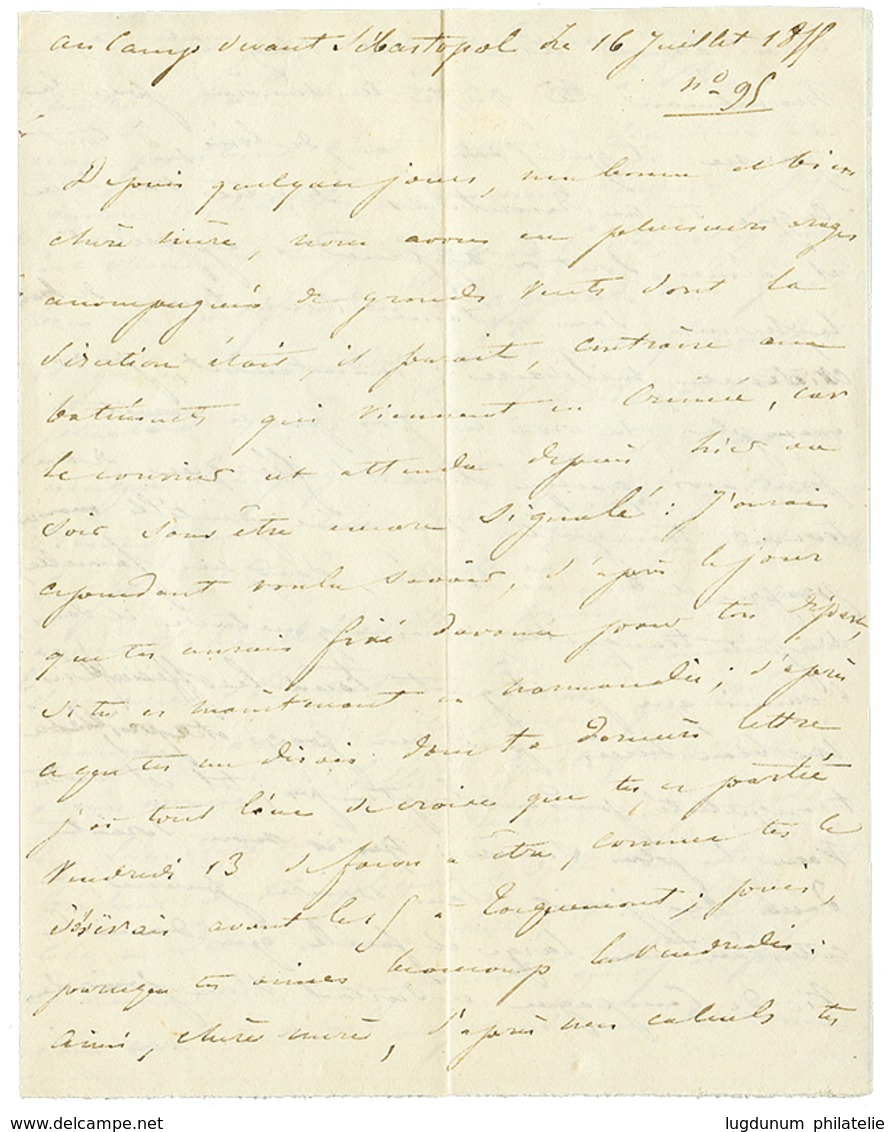 au Camp devant Sébastopol le 16 Juillet 1855
n° 95
Depuis quelques jours, ma bonne et bien
chère mère, nous avons eu plusieurs orages
accompagnés de grands vents dont la
direction était, il parait, contraire aux
batiments qui viennent en Crimée, car
le courrier est attendu depuis hier au
soir sans être encore signalé : J'aurais
cependant voulu savoir, d'après le jour
que tu aurais fixé d'avance pour ton départ,
si tu es maintenant en normandie ; d'après
ce que tu me disais dans ta dernière lettre
j'ai tout lieu de croire que tu es partie
Vendredi 13 de façon à être, comme tu le
désirais avant les à Tocquemont ; puis,
parceque tu aimes beaucoup les Vendredis :
Ainsi, chère mère, d'après mes calculs tu
www.delcampe.net
lugdunum philatelie